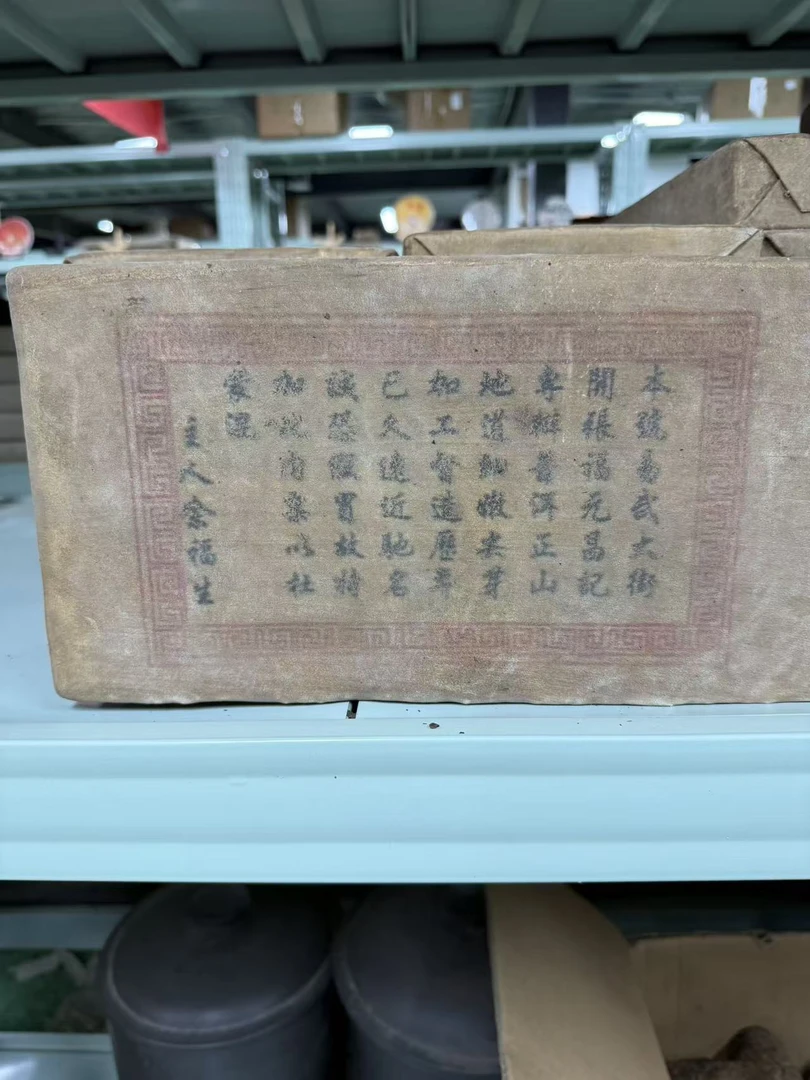 本號易武大街
開張福元昌記
專辦普洱正山
地道細嫩尖芽
加工督造歷年
已久遠近馳名
誠恐假冒故特
加此內票以杜
蒙混
主人余福生